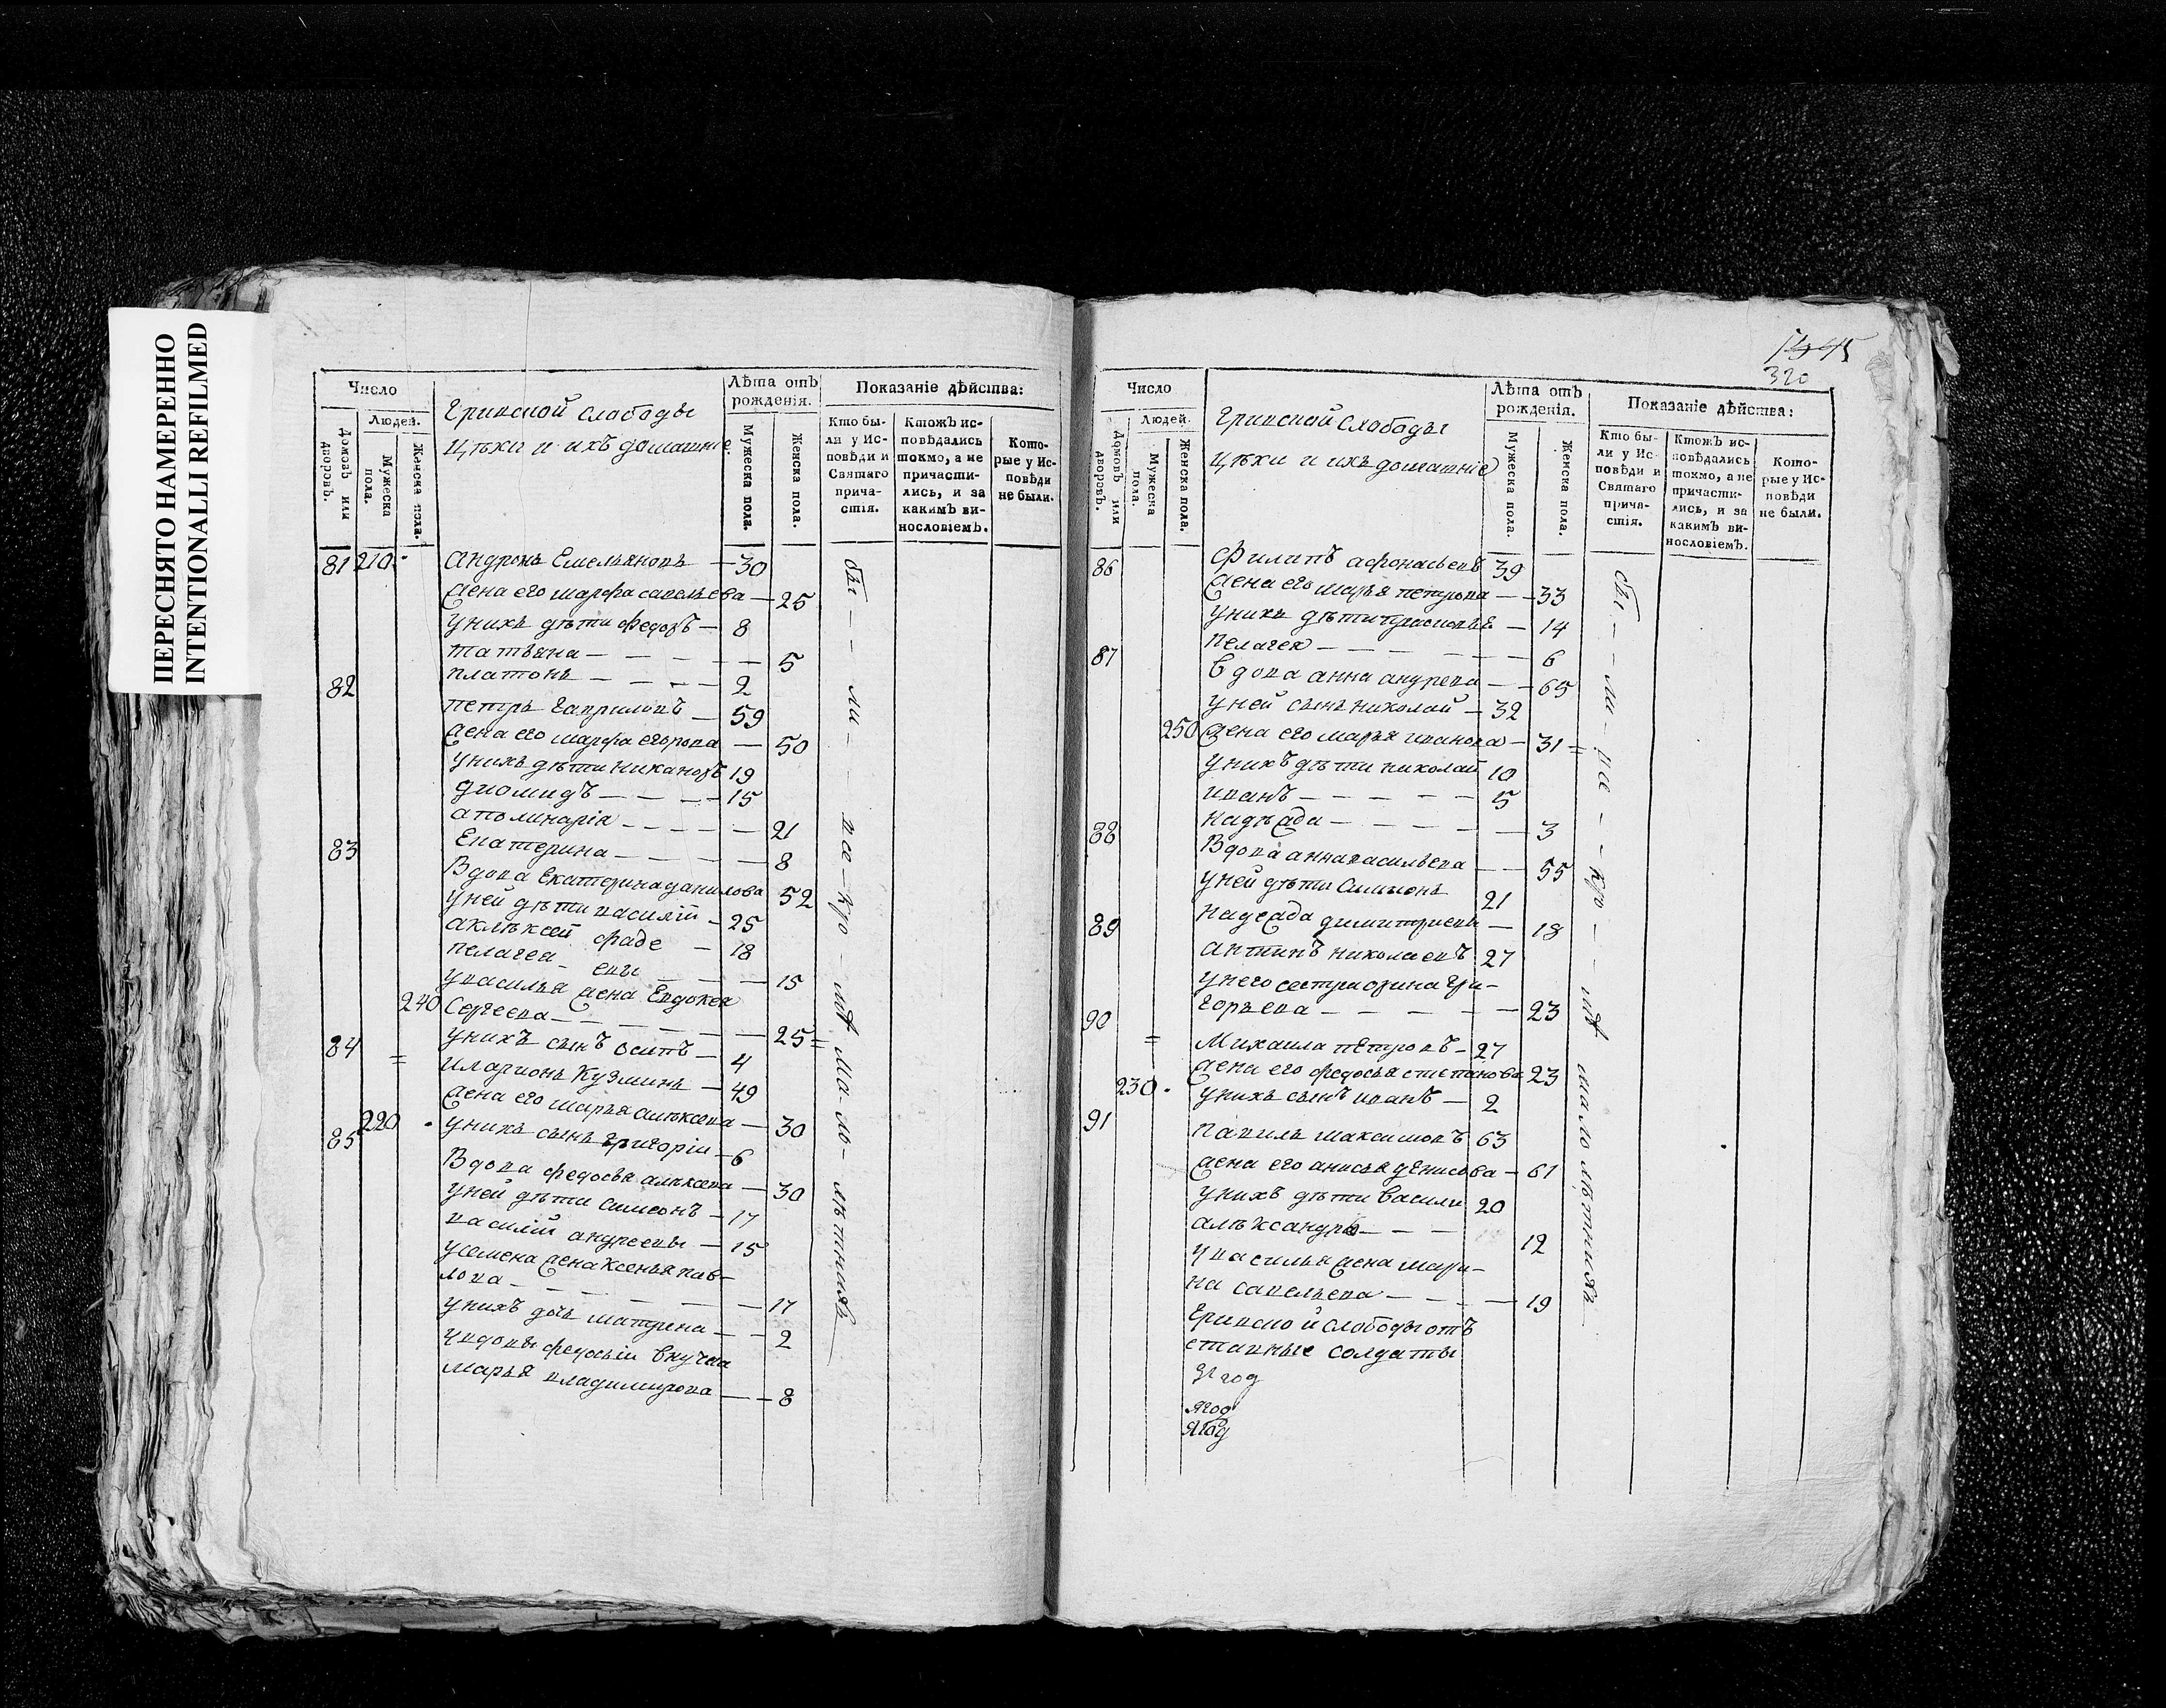 ПЕРЕСНЯТО НАМЕРЕННО
INTENTIONALLI REFILMED
Число
Людей.
Домовъ или дворовъ.
Мужеска пола.
Женска пола.
слободы
и ихъ домашніе
Лѣта отъ рожденія.
Мужеска пола.
Женска пола.
Показаніе дѣйства:
Кто бы-
ли у Ис-
повѣди и
Святаго
прича-
стія.
Ктожъ ис-
повѣдались
токмо, а не
причасти-
лись, и за
какимъ ви-
нословіемъ.
Кото-
рые у Ис-
повѣди
не были.
81 210 Андронъ Емельяновъ — 30
жена его марфа савельева — 25
унихъ дѣти федоръ — 8
татьяна — — — — 5
82 платонъ — — — — 2
петръ Гавриловъ — 59
жена его марфа егорова — 50
унихъ дѣти никаноръ 19
диомидъ — — — — 15
аполинарія — — — — 21
83 Екатерина — — — — 8
Вдова Екатерина данилова 52
уней дѣти василій — 25
алѣксей фаде — 18
пелагея — евы — — 15
увасилья жена Евдокея
240 Сергеева — — — — 25 =
84 = унихъ сынъ осипъ — 4
иларионъ Кузминъ — 49
жена его марья алѣксева — 30
85 220 унихъ сынъ григоріи — 6
Вдова федосья алѣксева — 30
уней дѣти симеонъ — 17
василій андреевы — 15
усемена жена Ксенья пав-
лова — — — — 17
унихъ дочь матрена — — 2
увдовы федосьи внучка
марья владимирова — — 8
бы — — ли — — все — кро — мѣ мало — лѣтнихъ
1345
320
Число
Людей.
Домовъ или дворовъ.
Мужеска пола.
Женска пола.
слободы
и ихъ домашніе
Лѣта отъ
рожденія.
Мужеска пола.
Женска пола.
Показаніе дѣйства:
Кто бы-
ли у Ис-
повѣди и
Святаго
прича-
стія.
Ктожъ ис-
повѣдались
токмо, а не
причасти-
лись, и за
какимъ ви-
нословіемъ.
Кото-
рые у Ис-
повѣди
не были.
86 Филипъ афонасьевъ 39
жена его марья петрова — — 33
унихъ дѣти — 14
87 пелагея — — — — 6
Вдова анна андрева — — 65
уней сынъ николай — 32
250 жена его марья иванова — 31 =
унихъ дѣти николай 10
иванъ — — — — 5
88 надѣжда — — — — 3
Вдова анна васильева — — 55
уней дѣти Симионъ 21
89 надежда димитриевы — 18
антипъ николаевъ 27
унего сестра орина гри-
90 горьева — — — — 23
= Михаила петровъ — 27
жена его федосья степанова 23
230 унихъ сынъ иванъ — 2
91 павилъ максимовъ 63
жена его анисья денисова — 61
унихъ дѣти Васили 20
алѣксандра — — — 12
увасилья жена мари-
на савельева — — — 19
слободы отъ
ставные солдаты
бы — — ли — все — кро — — мѣ малолѣтнихъ